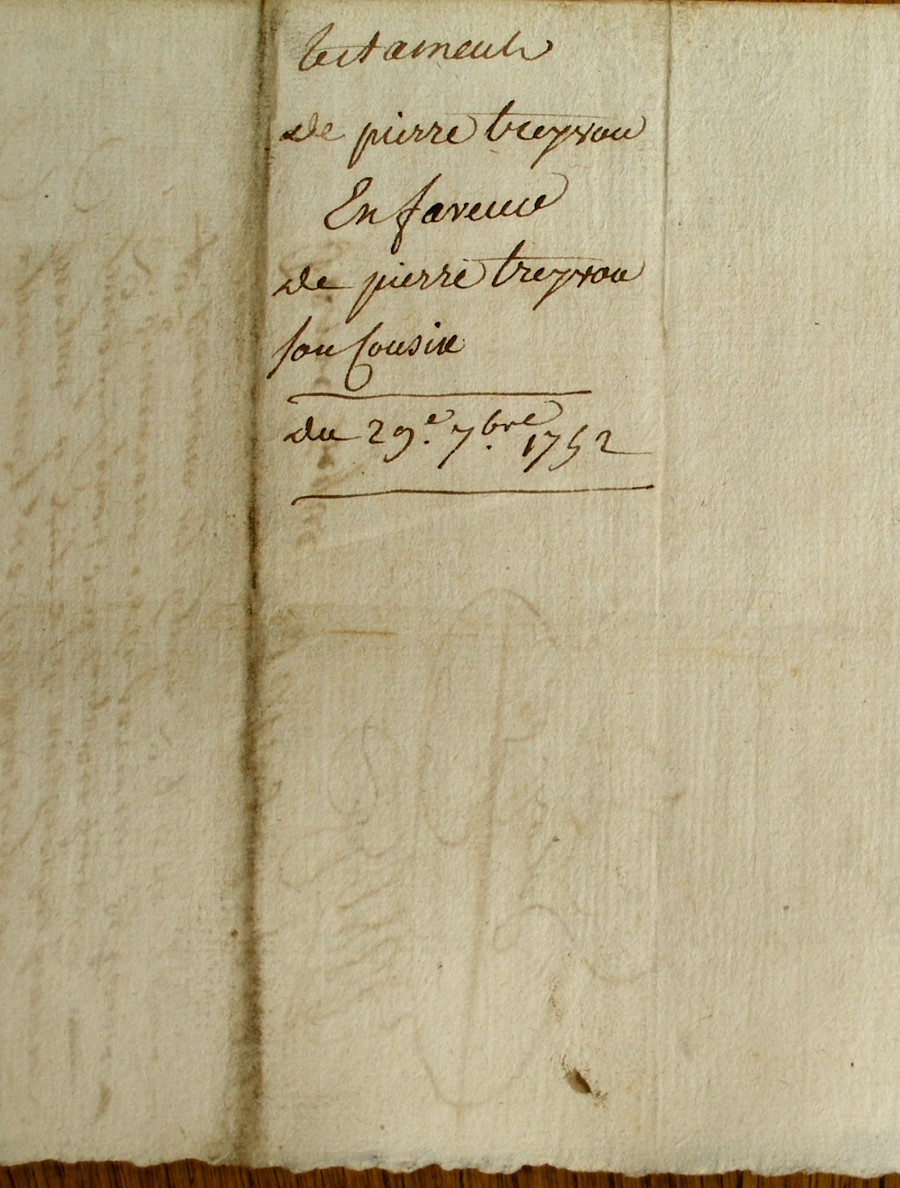 testament
de pierre treyvou
En faveur
de pierre treyvou
son Cousin
du 29.e 7.bre 1752